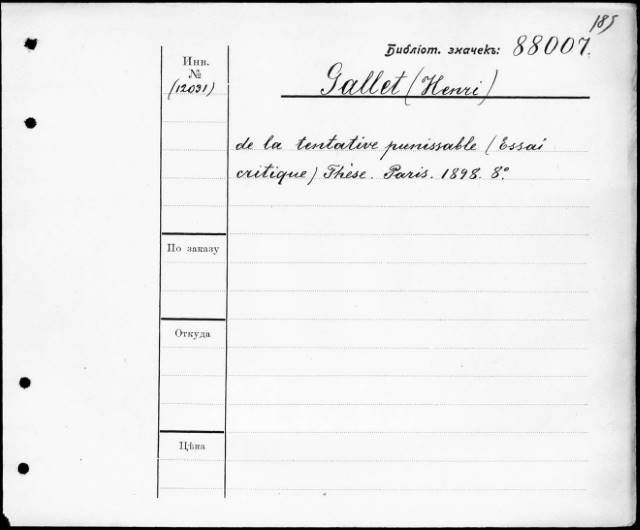 185
Библіот. значекъ: 88007.
Инв.
№
(12031)
Gallet (Henri)
de la tentative punissable (Essai
critique) Thèse. Paris. 1898. 8º
По заказу
Откуда
Цѣна